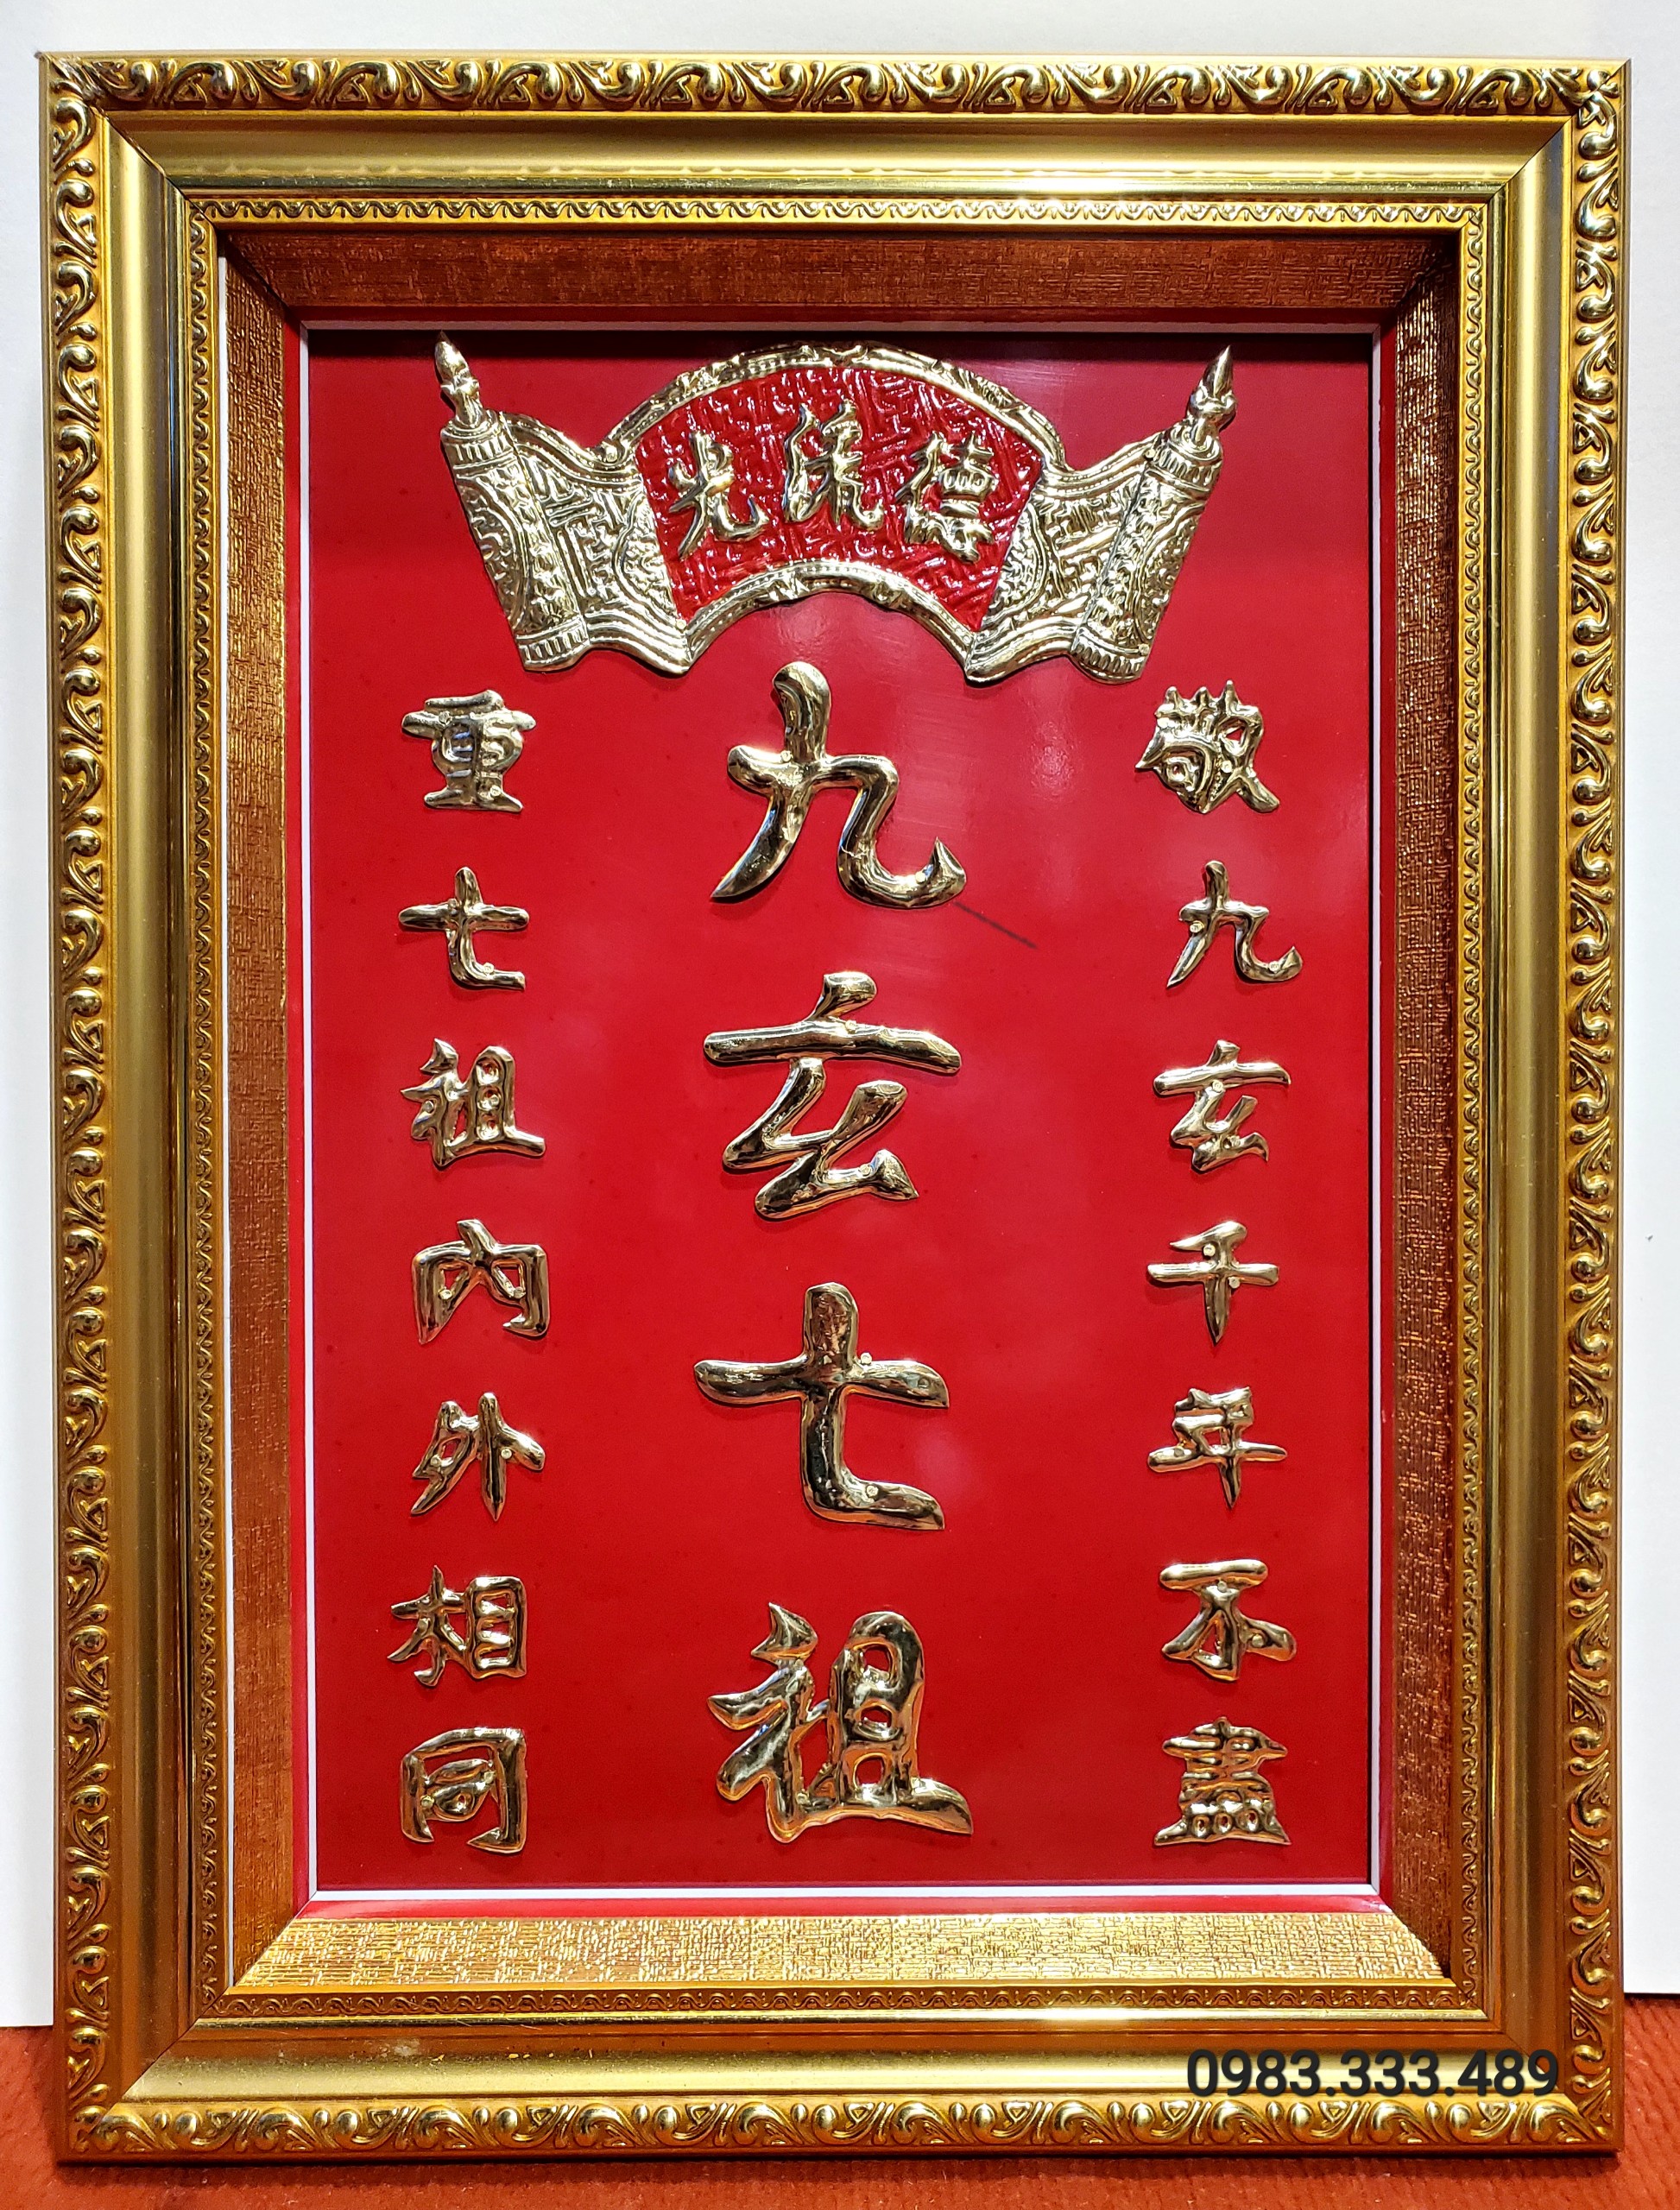 德流光
敬九玄千年不盡
九玄七祖
重七祖內外相同
0983.333.489